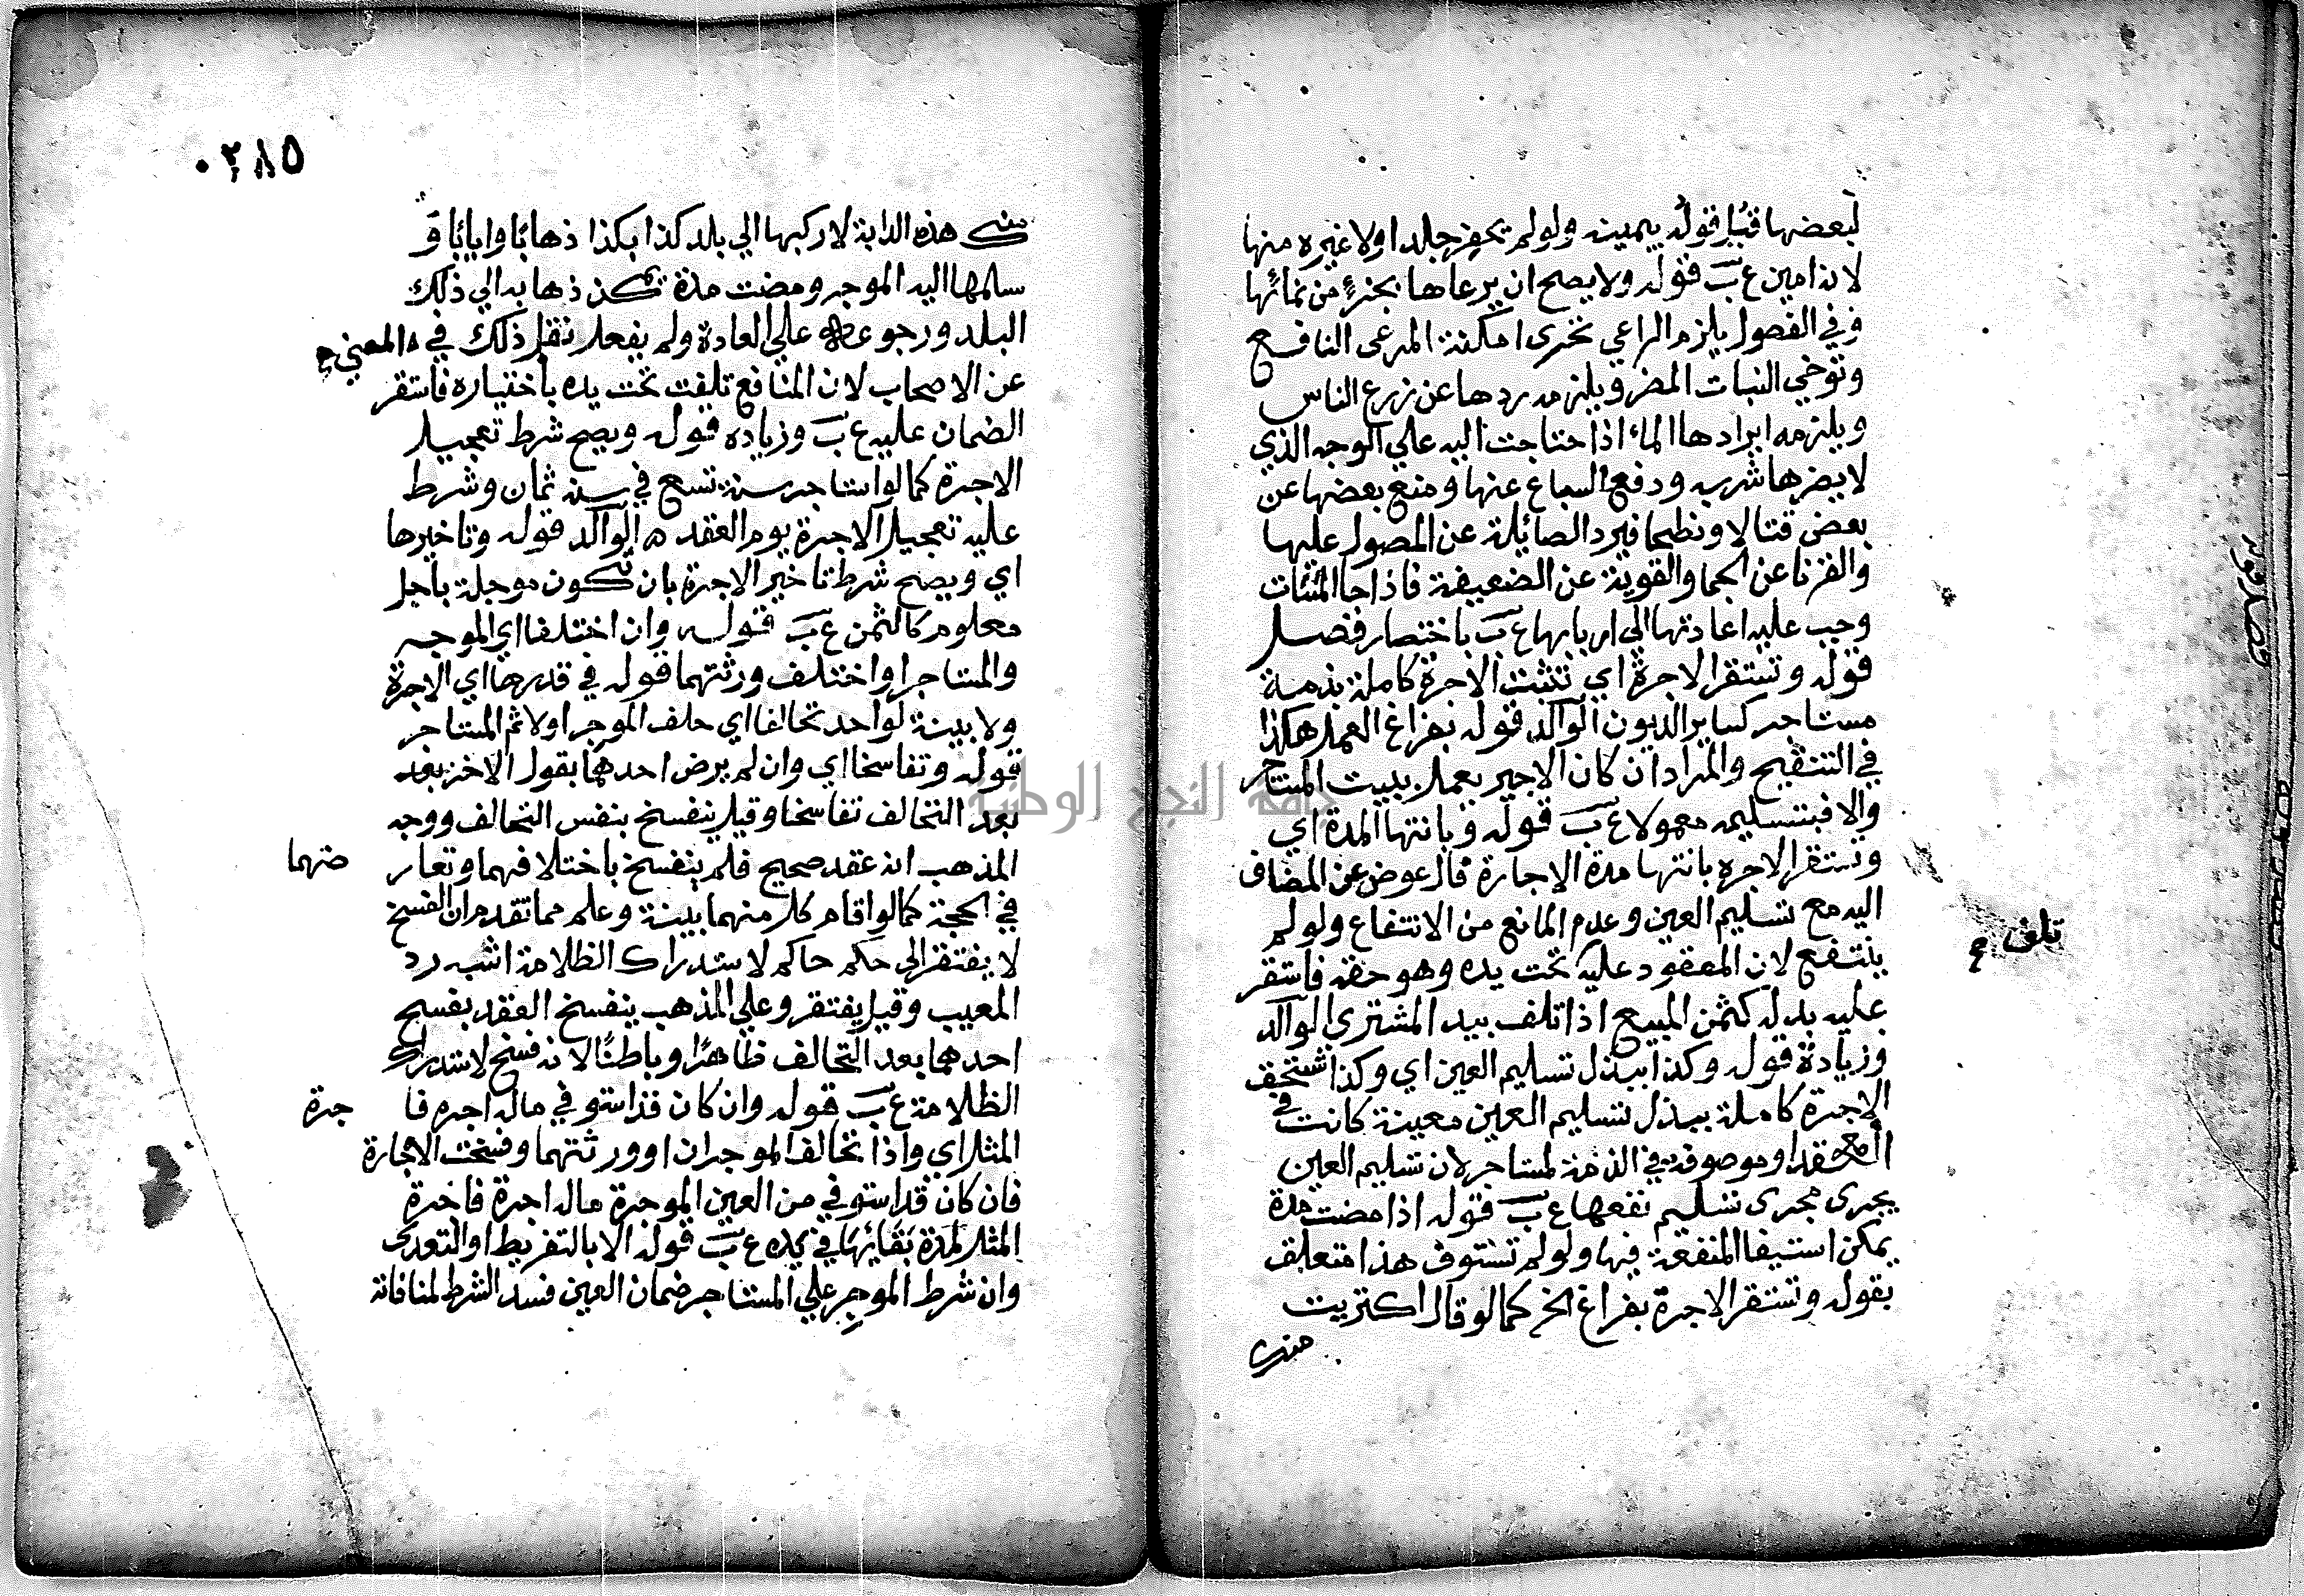 لبعضها قبل قوله بيمينه ولو لم يحضر جلدا ولا غيره منها
لانه امين ع ب قوله ولا يصح ان يرعاها بجزء من نمائها
وفي الفصول يلزم الراعي تحرى امكنة المرعى النافع
وتوخي النبات المضر ويلزمه ردها عن زرع الناس
ويلزمه ايرادها الماء اذا احتاجت اليه علي الوجه الذي
لا يضرها شربه ودفع السباع عنها ومنع بعضها عن
بعض قتالا ونطحا فيرد الصائلة عن المصول عليها
والقرنا عن الجما والقوية عن الضعيفة فاذا جا المساء
وجب عليه اعادتها الي اربابها ع ب باختصار فصل
قوله وتستقر الاجرة اي تثبت الاجرة كاملة بذمة
مستاجر كساير الديون الوالد قوله بفراغ العمل هكذا
في التنقيح والمراد ان كان الاجير يعمل ببيت المستاجر
والا فبتسليمه معمولا ع ب قوله وبانتها المدة اي
وتستقر الاجره بانتها مدة الاجارة قال عوض عن المضاف
اليه مع تسليم العين وعدم المانع من الانتفاع ولو لم
ينتفع لان المعقود عليه تحت يده وهو حقه فاستقر
تلف
عليه بدله كثمن المبيع اذا تلف بيد المشتري الوالد
وزيادة قوله وكذا ببذل تسليم العين اي وكذا تستحق
الاجرة كاملة ببذل تسليم العين معينة كانت في
العقد او موصوفة في الذمة لمستاجر لان تسليم العين
يجرى مجرى تسليم نفعها ع ب قوله اذا مضت مدة
يمكن استيفا المنفعة فيها ولو لم تستوف هذا متعلق
بقوله وتستقر الاجرة بفراغ الخ كما لو قال اكتريت
منك
٠٢٨٥
منك هذه الدابة لاركبها الي بلد كذا بكذا ذهابا وايابا و
سلمها اليه الموجر ومضت مدة تمكن ذهابه الي ذلك
البلد ورجوعه علي العادة ولم يفعل نقل ذلك في المغني
عن الاصحاب لان المنافع تلفت تحت يده باختياره فاستقر
الضمان عليه ع ب وزياده قوله ويصح شرط تعجيل
الاجرة كما لو استاجر سنة تسع في سنة ثمان وشرط
عليه تعجيل الاجرة يوم العقد ه الوالد قوله وتاخيرها
اي ويصح شرط تاخير الاجرة بان تكون موجلة باجل
معلوم كالثمن ع ب قوله وان اختلفا اي الموجر
والمستاجر او اختلف ورثتهما قوله في قدرها اي الاجرة
ولا بينة لواحد تحالفا اي حلف الموجر اولا ثم المستاجر
قوله وتفاسخا اي وان لم يرض احدهما بقول الاخر بعد
بعد التحالف تفاسخا وقيل ينفسخ بنفس التحالف ووجه
المذهب انه عقد صحيح فلم ينفسخ باختلافهما وتعار
ضهما
في الحجة كما لو اقام كل منهما بينة وعلم مما تقدم ان الفسخ
لا يفتقر الى حكم حاكم لاستدراك الظلامة اشبه رد
المعيب وقيل يفتقر وعلي المذهب ينفسخ العقد بفسخ
احدهما بعد التحالف ظاهرا وباطنا لانه فسخ لاستدراك
الظلامة ع ب قوله وان كان قد استوفي ماله اجره فا
جرة
المثل اي واذا تحالف الموجران او ورثتهما وفسخت الاجارة
فان كان قد استوفي من العين الموجرة ماله اجرة فاجرة
المثل لمدة بقائها في يده ع ب قوله الا بالتفريط او التعدى
وان شرط الموجر علي المستاجر ضمان العين فسد الشرط لمنافاته
جامعة النجاح الوطنية